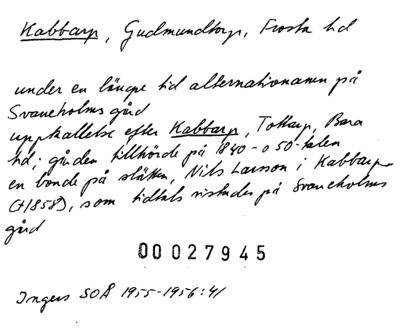 Kabbarp, Gudmundtorp, Frosta hd
under en längre tid alternativnamn på
Svaneholms gård
uppkallelse efter Kabbarp, Tottarp, Bara
hd; gården tillhörde på 1840- o 50-talen
en bonde på slätten, Nils Larsson i Kabbarp
(†1858), som tidtals vistades på Svaneholms
gård
00027945
Ingers SOÅ 1955-1956:41